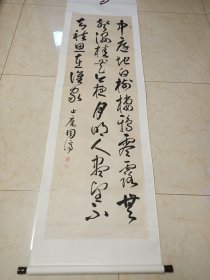 中庭地白樹棲鴉零露無
聲濕桂花今夜月明人盡望不
知秋思在誰家